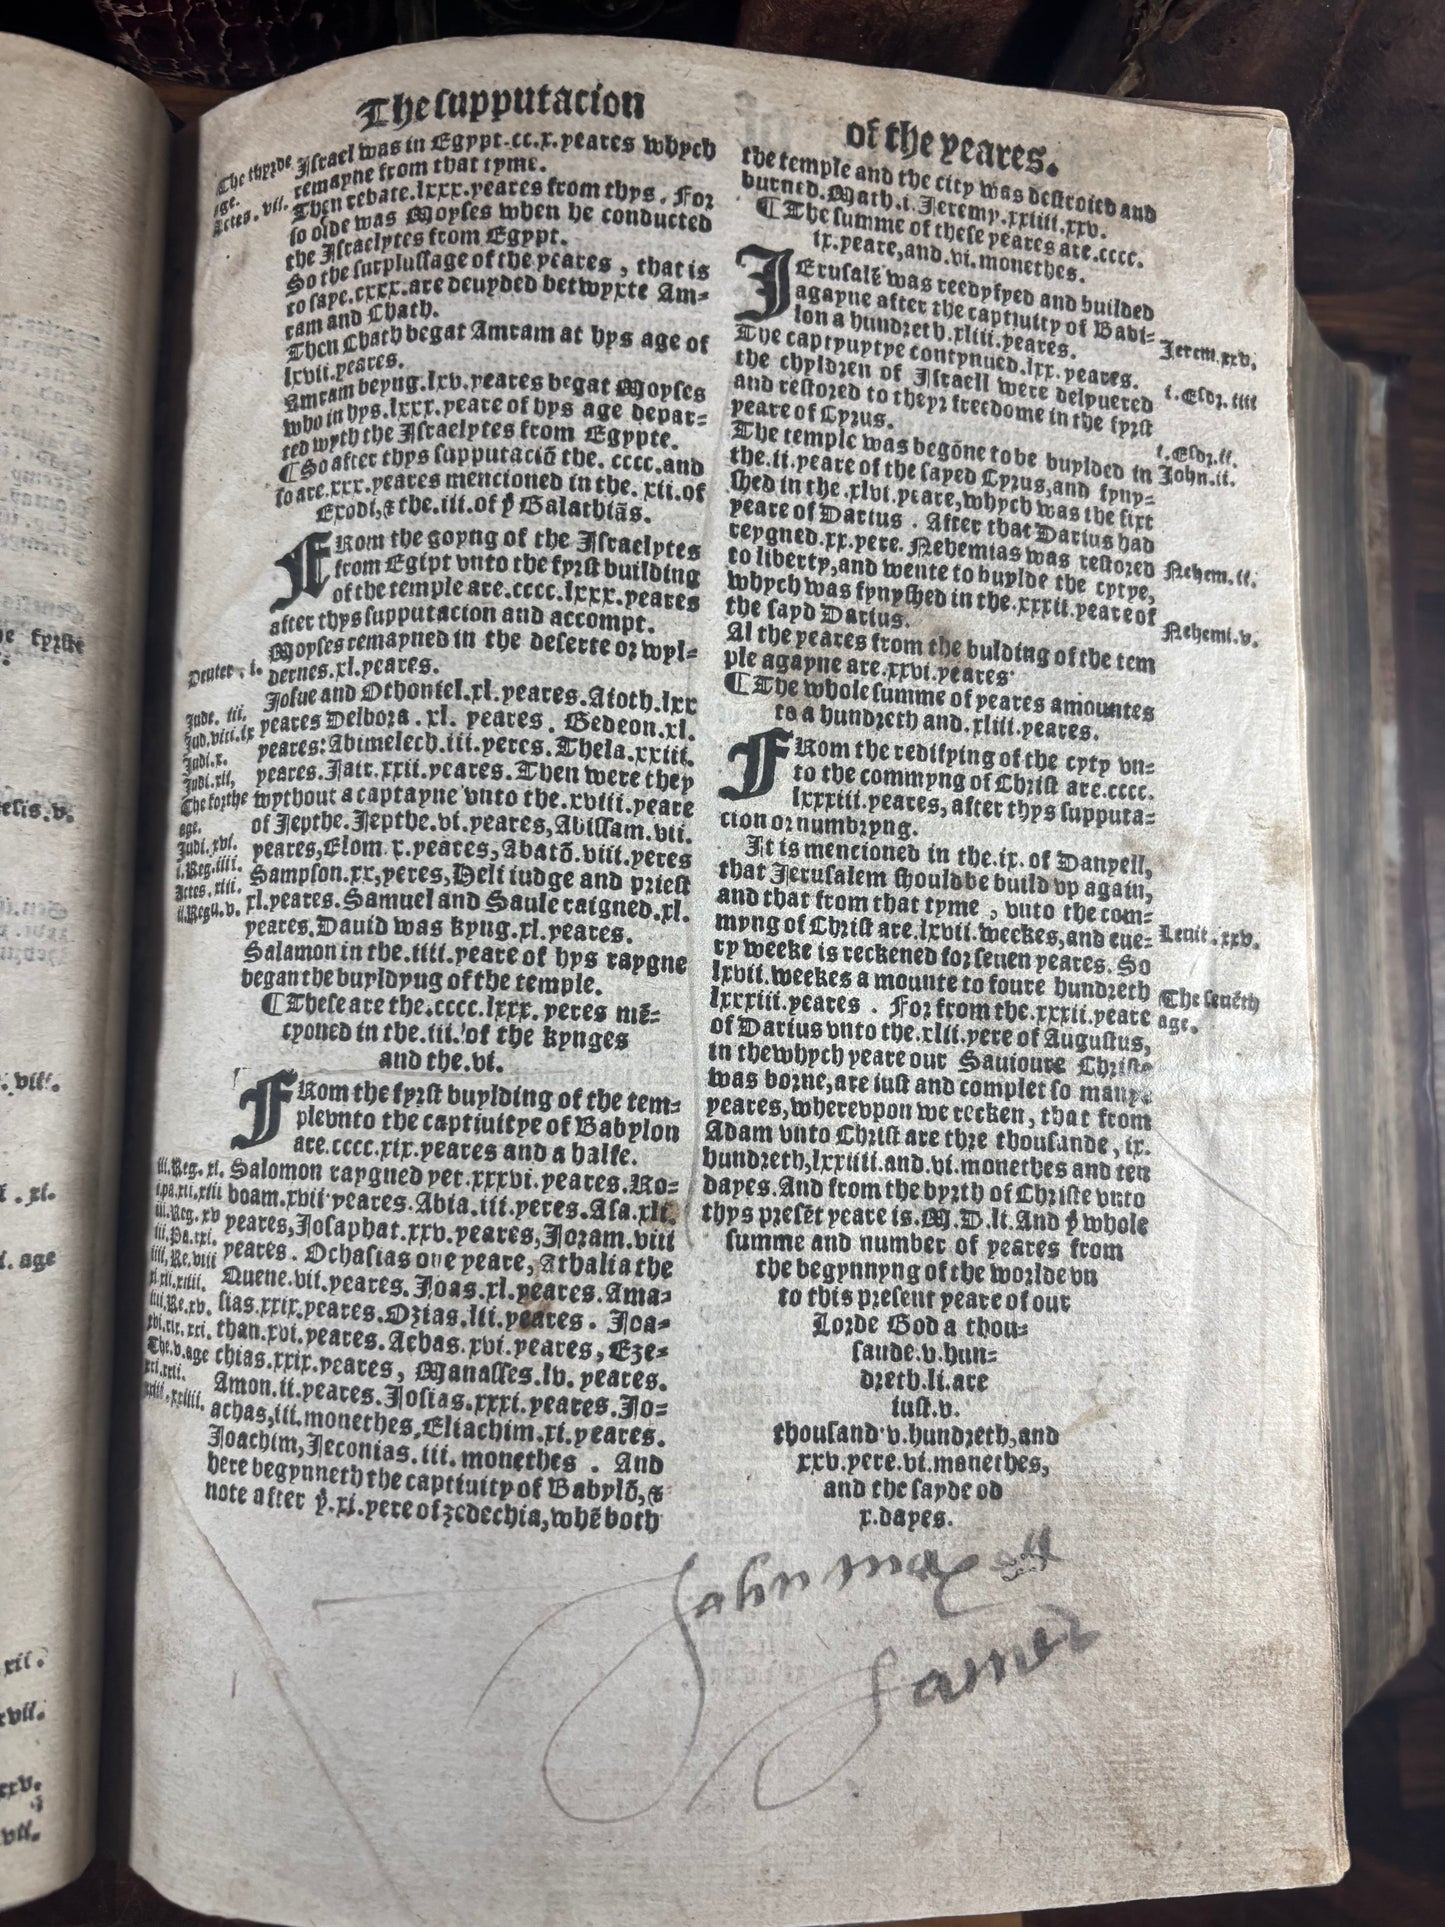 The supputacion
Israel was in Egypt.cc.x.yeares whych
remayne from that tyme.
Then rebate.lxxx.yeares from thys. For
so olde was Moyses when he conducted
the Israelytes from Egypt.
So the surplussage of the yeares, that is
to saye.cxxx.are deuyded betwyxte Am=
ram and Chath.
Then Chath begat Amram at hys age of
lxvii.yeares.
Amram beyng.lxv.yeares begat Moyses
who in hys.lxxx.yeare of hys age depar=
ted wyth the Israelytes from Egypte.
¶So after thys supputaciō the. cccc.and
so are.xxx.yeares mencioned in the. xii.of
Exodi,& the.iii.of yͤ Galathiās.
FRom the goyng of the Israelytes
from Egipt vnto the fyrst building
of the temple are.cccc.lxxx.yeares
after thys supputacion and accompt.
Moyses remayned in the deserte or wyl=
dernes.xl.yeares.
Josue and Othoniel.xl.yeares.Aioth.lxx
yeares Delbora . xl. yeares . Gedeon.xl.
yeares: Abimelech.iii.yeres. Thela.xxiii.
yeares.Jair.xxii.yeares.Then were they
wythout a captayne vnto the.xviii.yeare
of Jepthe.Jepthe.vi.yeares,Abissam.vii.
yeares,Elom x.yeares,Abatō.viii.yeres
Sampson.xx,yeres,Heli iudge and priest
xl.yeares.Samuel and Saule raigned.xl.
yeares.Dauid was kyng.xl.yeares.
Salamon in the.iiii.yeare of hys raygne
began the buyldyng of the temple.
¶These are the.cccc.lxxx. yeres mē=
cyoned in the.iii.of the kynges
and the.vi.
FRom the fyrst buylding of the tem=
plevnto the captiuitye of Babylon
are.cccc.xix.yeares and a halfe.
Salomon raygned yet.xxxvi.yeares.Ro=
boam.xvii yeares.Abia.iii.yeres.Asa.xli.
yeares,Josaphat.xxv.yeares,Joram.viii
yeares . Ochasias one yeare, Athalia the
Quene.vii.yeares. Joas.xl.yeares.Ama=
sias.xxix.yeares.Ozias.lii.yeares . Joa=
than.xvi.yeares.Achas.xvi.yeares, Eze=
chias.xxix.yeares, Manasses.lv. yeares.
Amon.ii.yeares.Josias.xxxi.yeares.Jo=
achas,iii.monethes,Eliachim.xi.yeares.
Joachim,Jeconias.iii.monethes . And
here begynneth the captiuity of Babylō,&
note after yͤ.xi.yere of zedechia,whē both
The thyrde
age.
Actes.vii.
Deuter. i.
Jude. iii.
Jud.viii.ix
Judi.x.
Judi.xii,
The forthe
age.
Judi.xvi.
i.Reg.iiii.
Actes.xiii.
ii.Regū.v.
iii.Reg.xi.
i.pa.xii.xiii
iii.Reg.xv
iii.Pa.xxi.
iiii.Re.viii
xi.xii.xiiii.
iiii.Re.xv.
xvi.xix.xxi.
The.v.age
xxi.xxii.
xxiii.xxiiii.
of the yeares.
the temple and the city was destroied and
burned.Math.i.Jeremy.xxliiii.xxv.
¶The summe of these yeares are.cccc.
ix.yeare,and.vi.monethes.
JErusalē was reedyfyed and builded
agayne after the captiuity of Babi=
lon a hundreth.xliii.yeares.
The captyuytye contynued.lxx.yeares.
the chyldren of Israell were delyuered
and restored to theyr freedome in the fyrst
yeare of Cyrus.
The temple was begōne to be buylded in
the.ii.yeare of the sayed Cyrus,and fyny=
shed in the.xlvi.yeare,whych was the sixt
yeare of Darius . After that Darius had
reygned.xx.yere. Nehemias was restored
to liberty,and wente to buylde the cytye,
whych was fynyshed in the.xxxii.yeare of
the sayd Darius.
Al the yeares from the bulding of the tem
ple agayne are.xxvi.yeares
¶The whole summe of yeares amountes
to a hundreth and.xliii.yeares.
FRom the redifying of the cyty vn=
to the commyng of Christ are.cccc.
lxxxiii.yeares, after thys supputa=
cion or numbryng.
It is mencioned in the.ix. of Danyell,
that Jerusalem should be build vp again,
and that from that tyme , vnto the com=
myng of Christ are.lxvii.weekes,and eue=
ry weeke is reckened for seuen yeares. So
lxvii.weekes a mounte to foure hundreth
lxxxiii.yeares . For from the.xxxii.yeare
of Darius vnto the.xlii.yere of Augustus,
in thewhych yeare our Sauioure Christe
was borne,are iust and complet so many
yeares,wherevpon we recken, that from
Adam vnto Christ are thre thousande, ix.
hundreth,lxxiiii.and.vi.monethes and ten
dayes.And from the byrth of Christe vnto
thys presēt yeare is.M.D.li.And yͤ whole
summe and number of yeares from
the begynnyng of the worlde vn
to this present yeare of our
Lorde God a thou=
sande.v.hun=
dreth.li.are
iust.v.
thousand v.hundreth,and
xxv.yere.vi.monethes,
and the sayde od
x.dayes.
Jerem.xxv.
i.Esdr.iiii
i.Esdr.ii.
John.ii.
Nehem.ii.
Nehemi.v.
Leuit.xxv.
The seuēth
age.
John
James